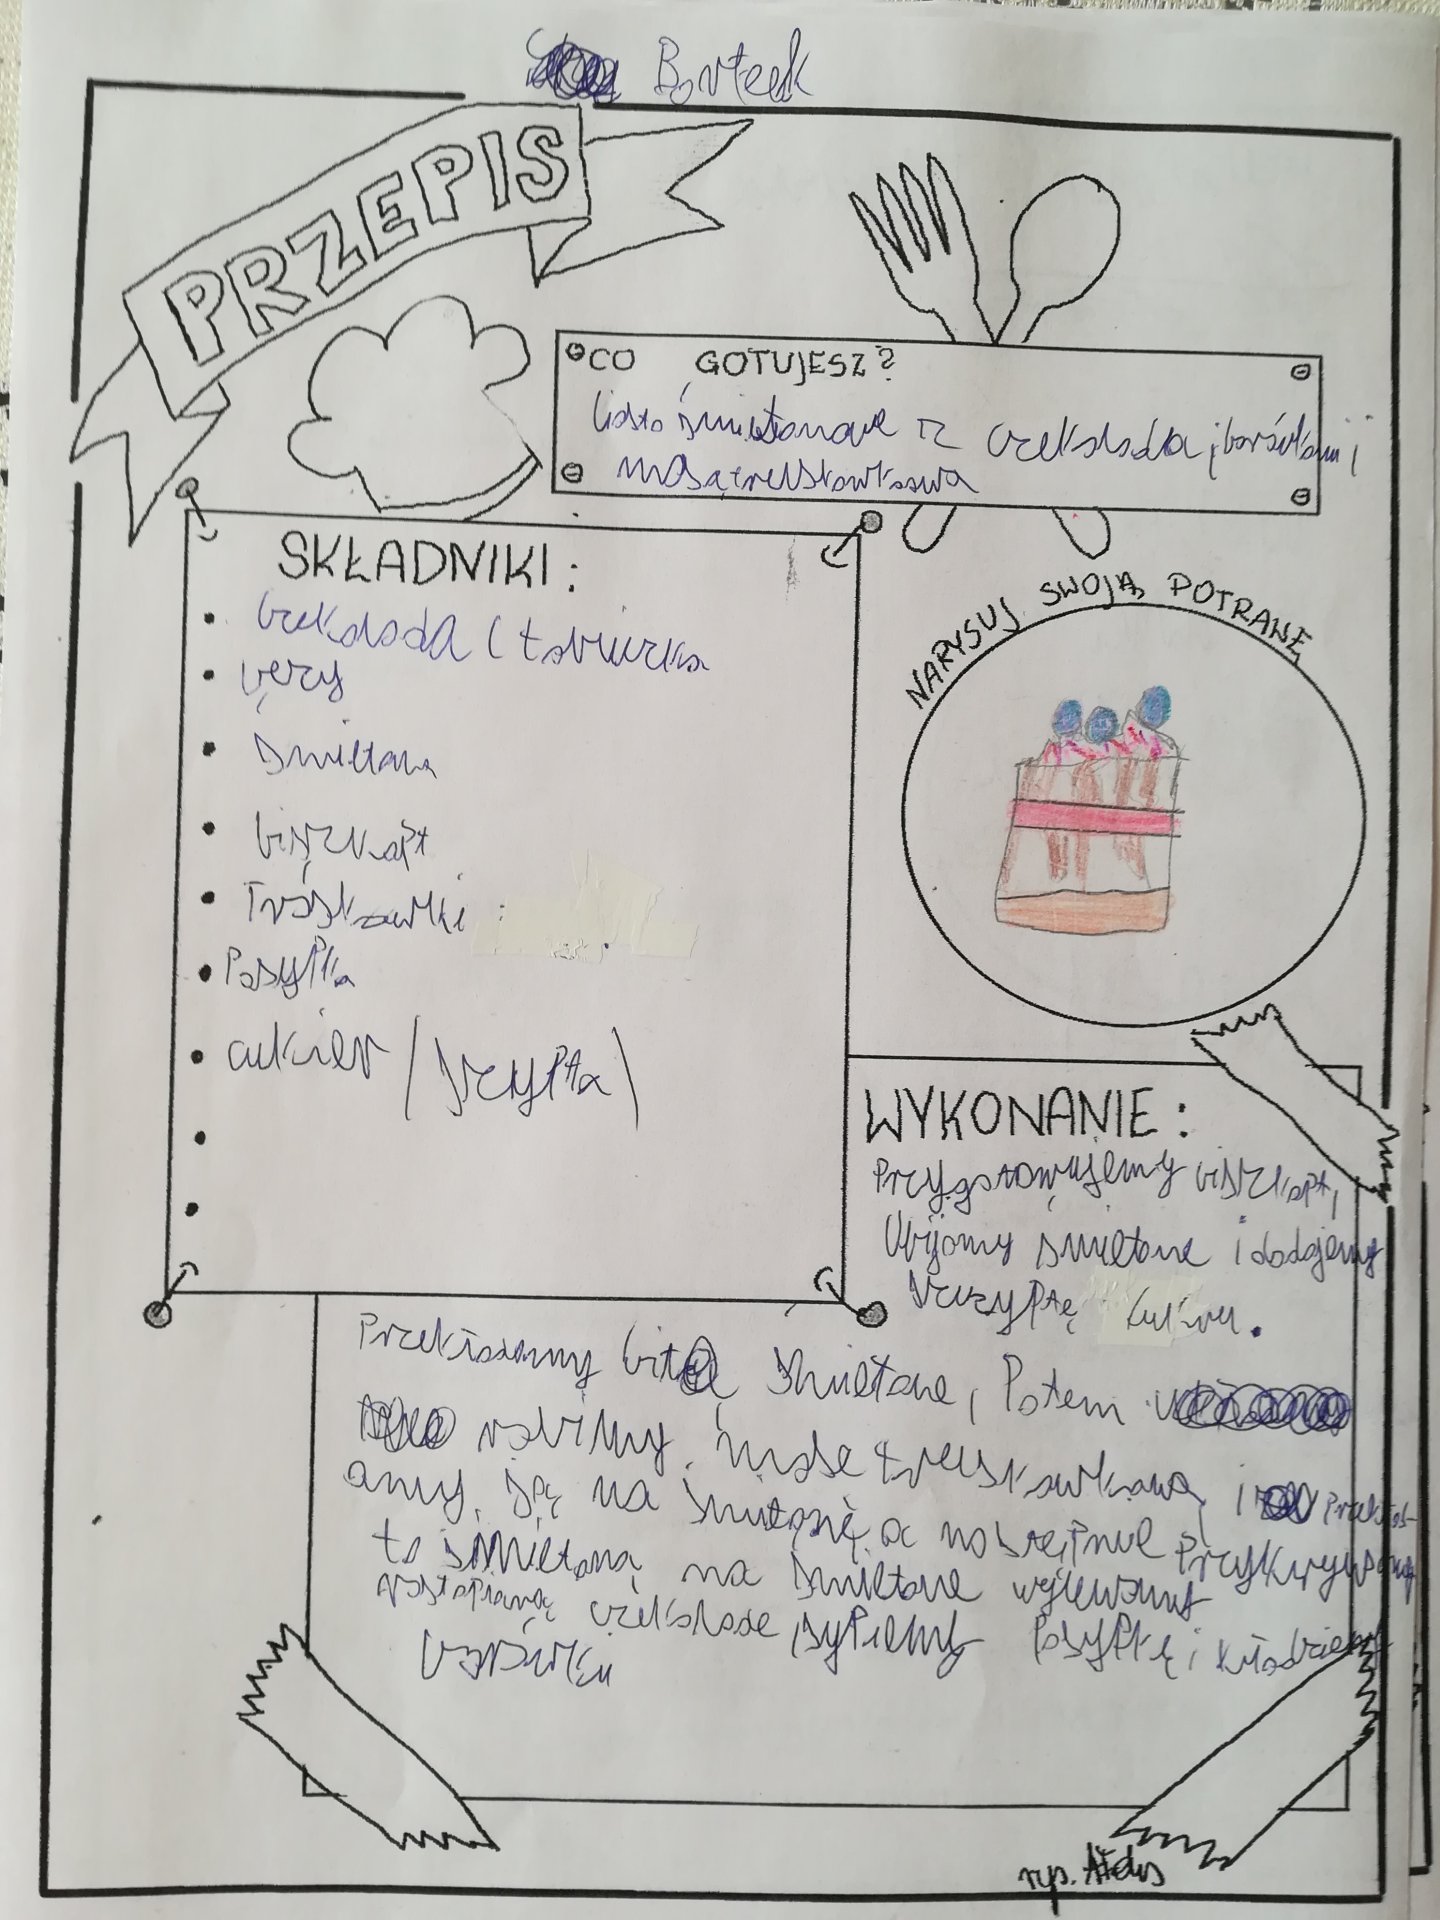 Bartek
PRZEPIS
CO GOTUJESZ?
śmietanowe z czekoladą i borówkami i
masą truskawkową
SKŁADNIKI:
czekolada (tabliczka
śmietana
biszkopt
Truskawki
Posypka
cukier (szczypta)
NARYSUJ SWOJĄ POTRAWĘ
WYKONANIE:
Przygotowujemy biszkopt,
Ubijamy śmietane i dodajemy
szczyptę cukru.
Przekładamy bitą śmietane, Potem
robimy mase truskawkową i
ją na śmietanę a następnie przykrywamy
to śmietaną na śmietane wylewamy
czekolade, sypiemy Posypkę i kładziemy
borówki
rys.